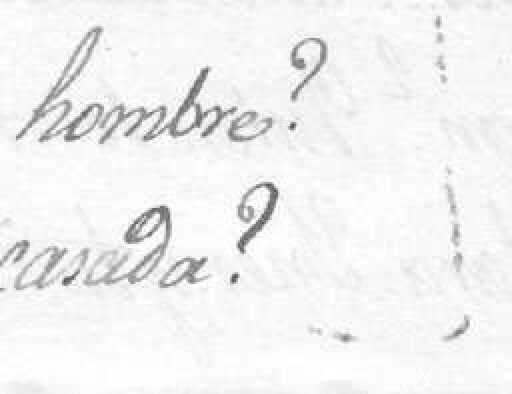 hombre?
casada?